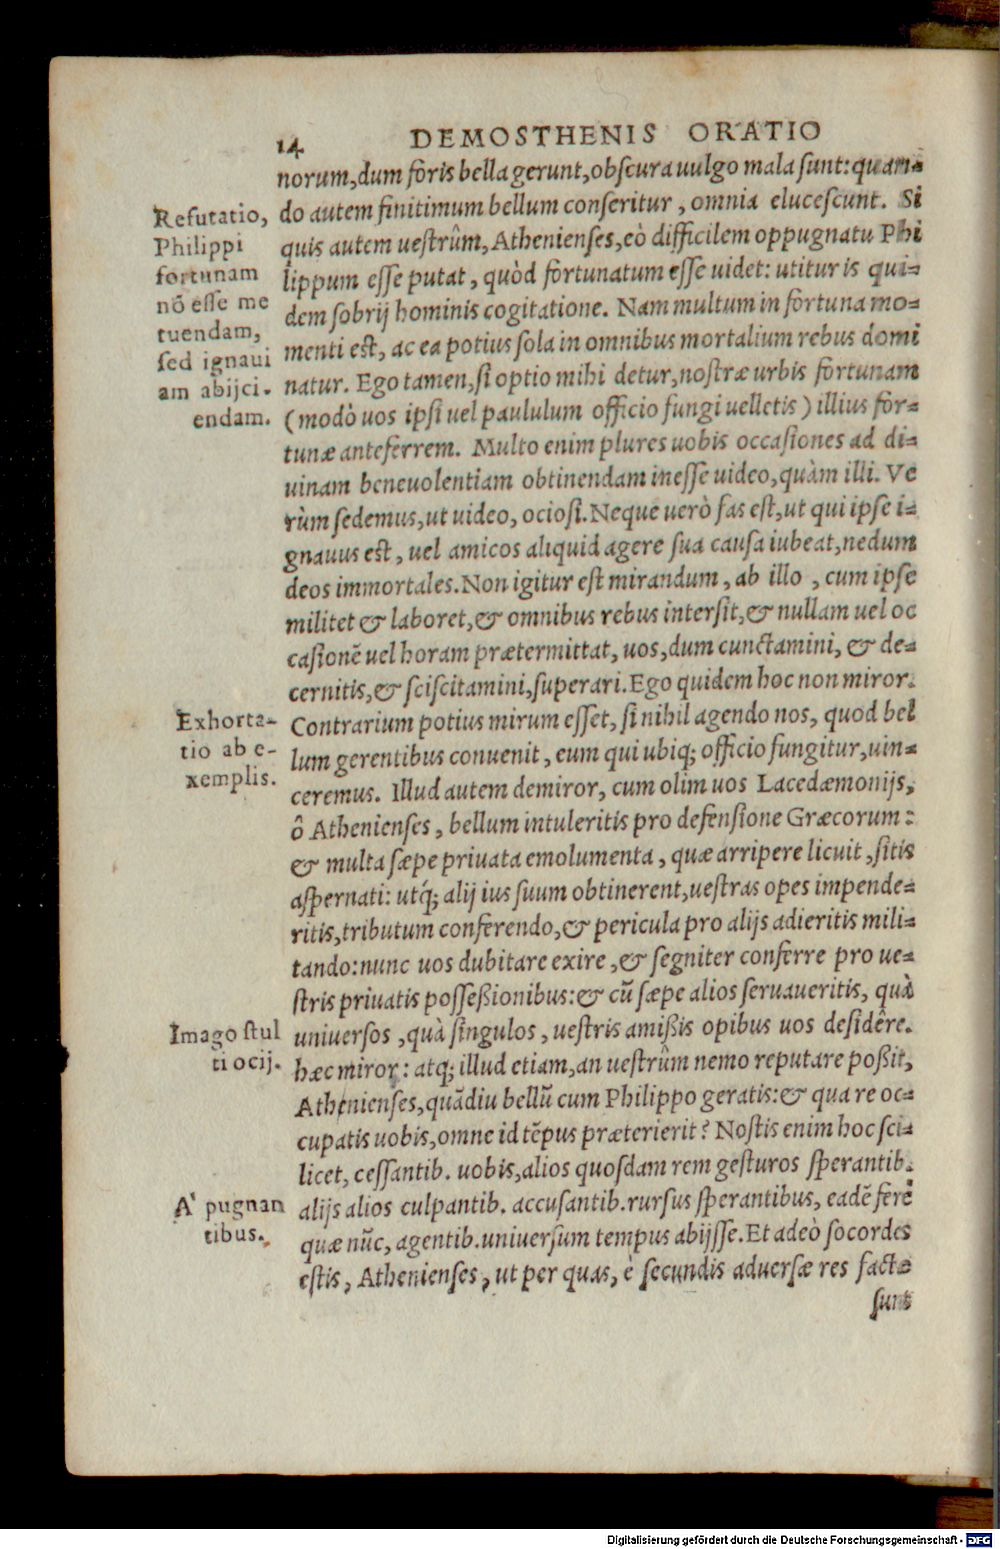 14 DEMOSTHENIS ORATIO
norum, dum foris bella gerunt, obscura uulgo mala sunt: quan=
do autem finitimum bellum conseritur, omnia elucescunt. Si
quis autem uestrûm, Athenienses, eò difficilem oppugnatu Phi
lippum esse putat, quòd fortunatum esse uidet: utitur is qui=
dem sobrij hominis cogitatione. Nam multum in fortuna mo=
menti est, ac ea potius sola in omnibus mortalium rebus domi
natur. Ego tamen, si optio mihi detur, nostræ urbis fortunam
(modò uos ipsi uel paululum officio fungi uelletis) illius for=
tunæ anteferrem. Multo enim plures uobis occasiones ad di=
uinam beneuolentiam obtinendam inesse uideo, quàm illi. Ve
rùm sedemus, ut uideo, ociosi. Neque uerò fas est, ut qui ipse i=
gnauus est, uel amicos aliquid agere sua causa iubeat, nedum
deos immortales. Non igitur est mirandum, ab illo, cum ipse
militet & laboret, & omnibus rebus intersit, & nullam uel oc
casionē uel horam prætermittat, uos, dum cunctamini, & de=
cernitis, & sciscitamini, superari. Ego quidem hoc non miror.
Contrarium potius mirum esset, si nihil agendo nos, quod bel
lum gerentibus conuenit, eum qui ubiq; officio fungitur, uin=
ceremus. Illud autem demiror, cum olim uos Lacedæmonijs,
ô Athenienses, bellum intuleritis pro defensione Græcorum:
& multa sæpe priuata emolumenta, quæ arripere licuit, sitis
aspernati: utq́; alij ius suum obtinerent, uestras opes impende=
ritis, tributum conferendo, & pericula pro alijs adieritis mili=
tando: nunc uos dubitare exire, & segniter conferre pro ue=
stris priuatis possessionibus: & cū sæpe alios seruaueritis, quà
uniuersos, quà singulos, uestris amissis opibus uos desidêre.
hæc miror: atq; illud etiam, an uestrûm nemo reputare possit,
Athenienses, quādiu bellū cum Philippo geratis: & qua re oc=
cupatis uobis, omne id tēpus præterierit? Nostis enim hoc sci=
licet, cessantib. uobis, alios quosdam rem gesturos sperantib.
alijs alios culpantib. accusantib. rursus sperantibus, eadē ferè
quæ nūc, agentib. uniuersum tempus abijsse. Et adeò socordes
estis, Athenienses, ut per quas, è secundis aduersæ res factæ
sunt
Refutatio,
Philippi
fortunam
nō esse me
tuendam,
sed ignaui
am abijci.
endam.
Exhorta-
tio ab e-
xemplis.
Imago stul
ti ocij.
A' pugnan
tibus.
Digitalisierung gefördert durch die Deutsche Forschungsgemeinschaft - DFG